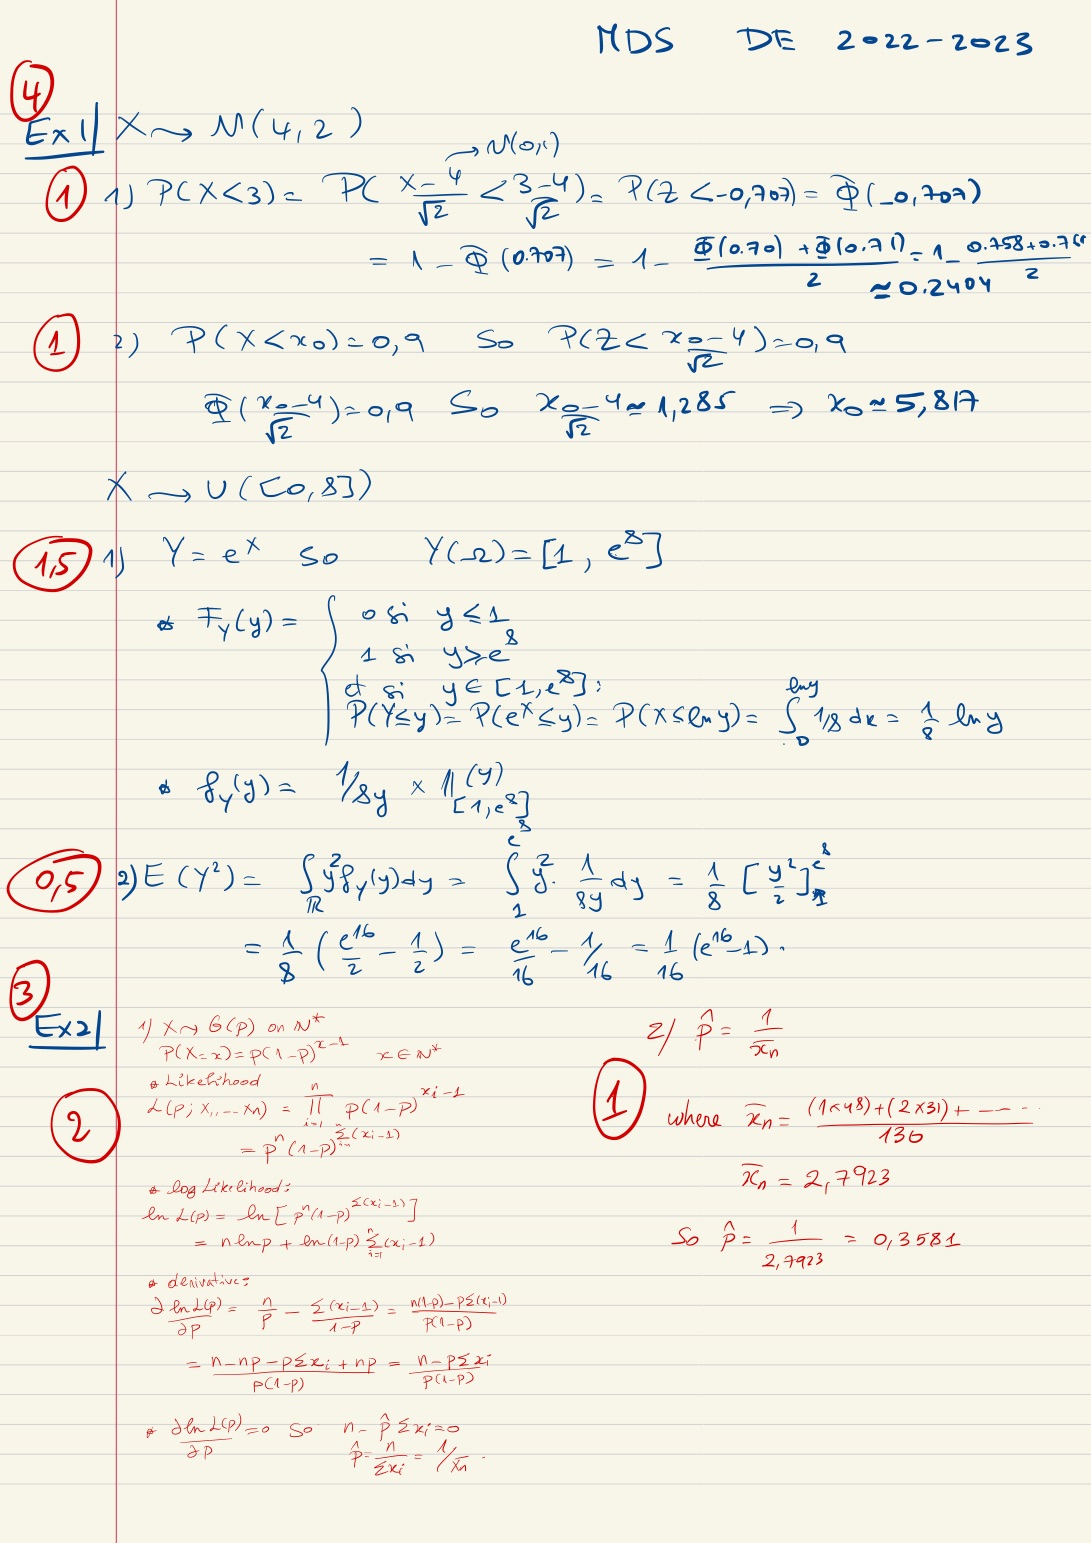 MDS DE 2022-2023
4
Ex1| X ⤳ N(4,2)
→ N(0,1)
1
1) P(X<3) = P( (X-4)/√2 < (3-4)/√2 ) = P(Z<-0,707) = Φ(-0,707)
= 1 - Φ(0.707) = 1 - (Φ(0.70) + Φ(0.71))/2 = 1 - (0.758+0.761)/2
≃ 0.2404
1
2) P(X<x0) = 0,9 So P(Z < (x0-4)/√2) = 0,9
Φ((x0-4)/√2) = 0,9 So (x0-4)/√2 ≃ 1,285 ⇒ x0 ≃ 5,817
X ⤳ U([0,8])
1,5
1) Y = e^X so Y(Ω) = [1, e^8]
* F_Y(y) = { 0 si y ≤ 1
1 si y ≥ e^8
et si y ∈ [1,e^8]:
P(Y≤y) = P(e^X ≤ y) = P(X ≤ ln y) = ∫_0^{ln y} 1/8 dx = 1/8 ln y
* f_Y(y) = 1/8y × 𝟙_[1,e^8](y)
0,5
2) E(Y²) = ∫_ℝ y² f_Y(y) dy = ∫_1^{e^8} y² · 1/8y dy = 1/8 [y²/2]_1^{e^8}
= 1/8 (e^16/2 - 1/2) = e^16/16 - 1/16 = 1/16 (e^16 - 1).
3
Ex2|
2
1) X ⤳ G(p) on N*
P(X=x) = p(1-p)^{x-1} x ∈ N*
* Likelihood
L(p; x1,... xn) = ∏_{i=1}^n p(1-p)^{xi-1}
= p^n (1-p)^{Σ(xi-1)}
* log Likelihood:
ln L(p) = ln [p^n (1-p)^{Σ(xi-1)}]
= n ln p + ln(1-p) Σ_{i=1}^n (xi-1)
* derivative:
∂ ln L(p)/∂p = n/p - Σ(xi-1)/(1-p) = (n(1-p) - pΣ(xi-1))/(p(1-p))
= (n - np - pΣxi + np)/(p(1-p)) = (n - pΣxi)/(p(1-p))
* ∂ ln L(p)/∂p = 0 So n - p̂ Σxi = 0
p̂ = n/Σxi = 1/x̄n.
2) p̂ = 1/x̄n
1
where x̄n = ((1×48)+(2×31)+ -----)/130
x̄n = 2,7923
So p̂ = 1/2,7923 = 0,3581